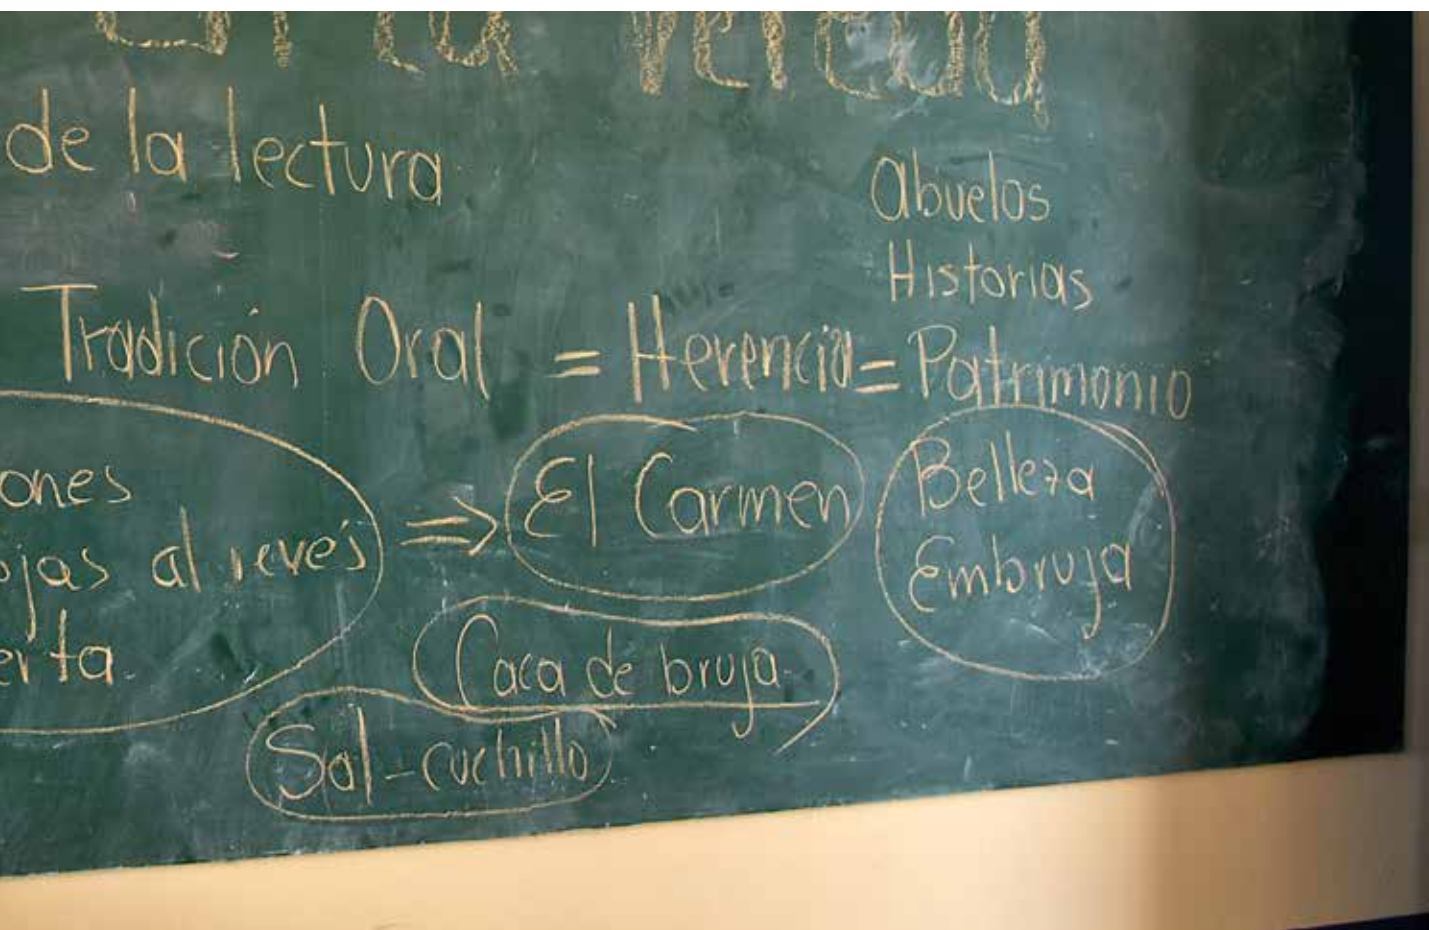 la vereda
de la lectura
Abuelos
Historias
Tradición Oral = Herencia = Patrimonio
ones
al revés ⇒ El Carmen
erta.
Belleza
Embruja
Caca de bruja.
Sal - cuchillo